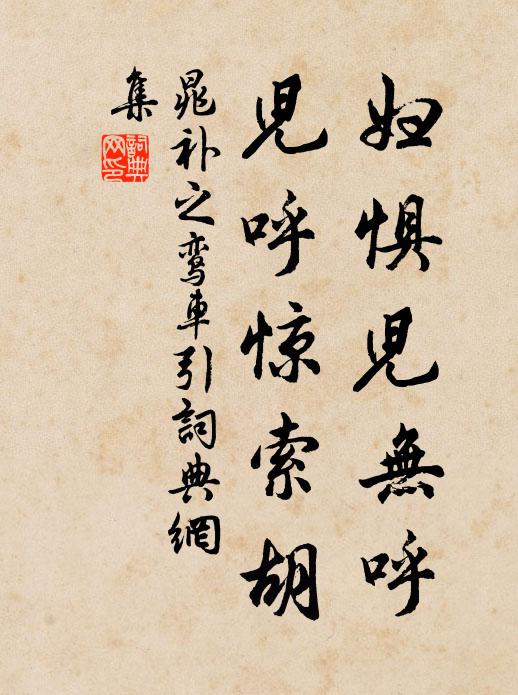 妇惧児無呼
児呼惊索胡
晁补之鸾車引詞典網
集
詞典
网印